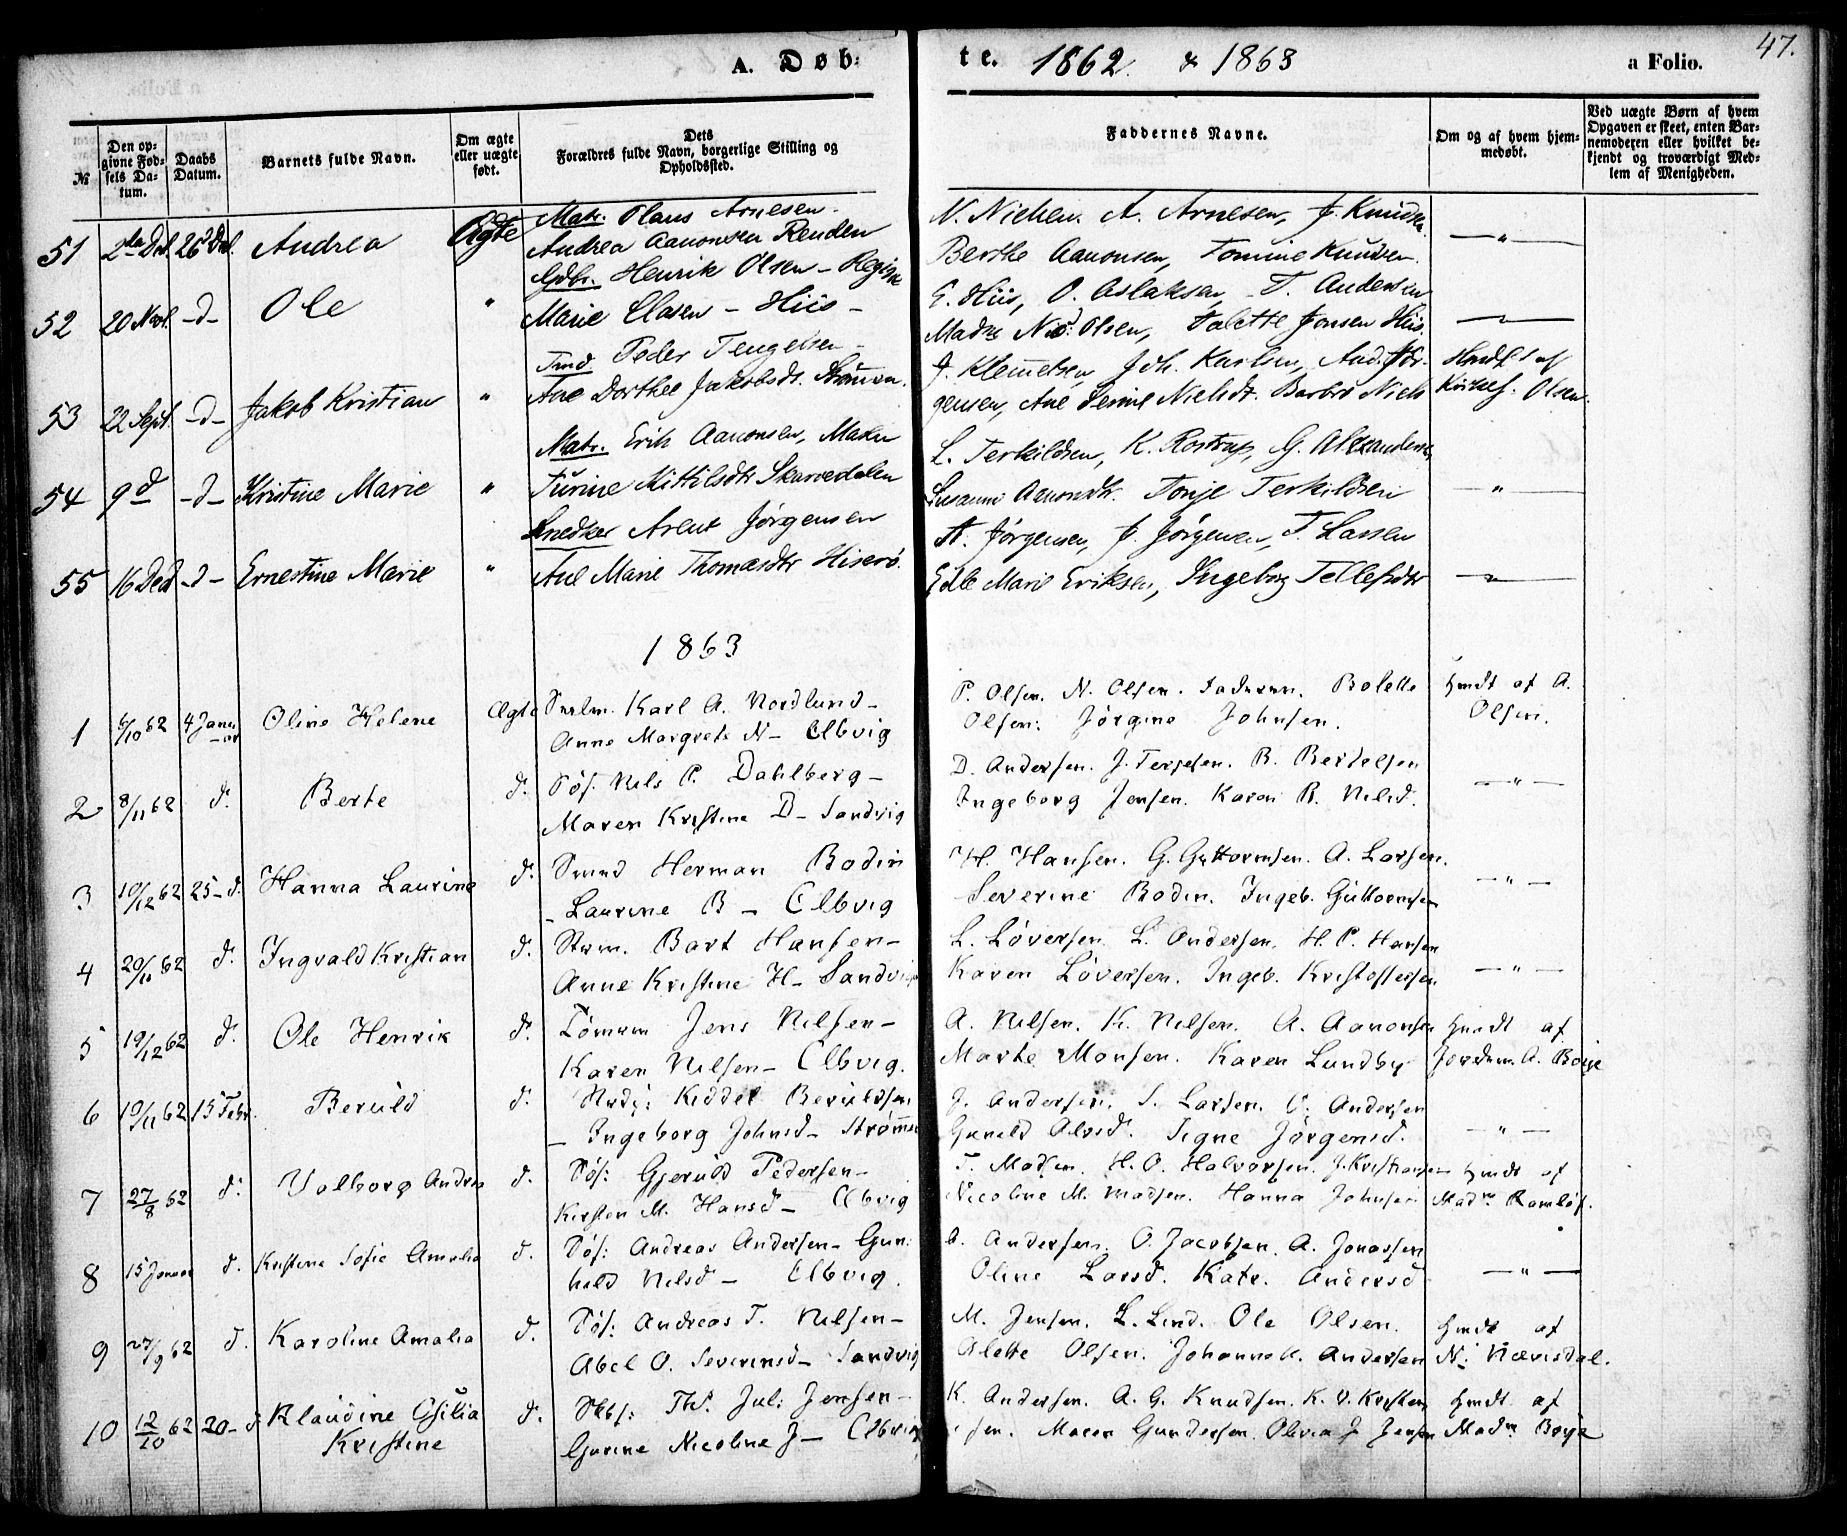 A. Døb-
te. 1862. & 1863
a Folio. 47.
№
Den opgivne Fødsels Datum.
Daabs Datum.
Barnets fulde Navn.
Om ægte eller uægte født.
Dets Forældres fulde Navn, borgerlige Stilling og Opholdssted.
Faddernes Navne.
Om og af hvem hjemmedøbt.
Ved uægte Børn af hvem Opgaven er skeet, enten Barnemoderen eller hvilket bekjendt og troværdigt Medlem af Menigheden.
51 2den Det. 26 Det. Andrea Ægte
Matr. Olaus Arnesen.
Andrea Aanonsen Renden
N. Nielsen. A. Arnesen, J. Knudsen
Berthe Aanonsen, Tomine Knudsen. —"—
52 20 Novb. -d- Ole "
Gdbr. Henrik Olsen - Regine
Marie Olasen - Hiis -
E. Hiis, O. Aslaksen, T. Andersen
Olsen, Talette Jonsen Hiis. —"—
53 22 Sept. -d- Jakob Kristian "
Tmd Peder Tengelsen -
Ane Dorthee Jakobsdt. Strømmen.
J. Klemetsen, Joh. Karlsen, And. Jør-
gensen, Ane Nielsdt. Barbro Niels
Hmdt af
Olsen.
54 9 d -d- Kristine Marie "
Matr. Erik Aanonsen, Maren
Turine Kittilsdtr Skarvedalen
L. Terkildsen, K. Rostrup, G. Alexandersen
Susanne Aanondtr. Tonje Terkildsen —"—
55 16 Det -d- Ernestine Marie "
Snedker Arent Jørgensen
Ane Marie Thomasdtr Hiserø.
A. Jørgensen, J. Jørgensen, T. Lassen
Edle Marie Eriksen, Ingeborg Tellefsdtr —"—
1863
1 6/10 62 4 Januar Oline Helene Ægte
Smlm. Karl A. Nordlund -
Anne Margrete N - Elbvig
P. Olsen. N. Olsen. Faderen. Bolette
Olsen. Jørgine Johnsen.
Hmdt af A.
Olsen.
2 8/11 62 d. Berte d.
Søf. Nils P. Dahlberg -
Maren Kristine D - Sandvig
D. Andersen. J. Terjesen. B. Bertelsen
Ingeborg Jensen. Karen B. Nilsd. —"—
3 10/12 62 25 - d. Hanna Laurine d.
Smed Herman Bodin
- Laurine B - Elbvig
H. Hansen. G. Guttormsen. A. Larsen.
Severine Bodin. Ingeb. Guttormsen —"—
4 20/11 62 d. Ingvald Kristian d.
Strm. Bart Hansen -
Anne Kristine H - Sandvig
L. Löversen. L. Andersen. H. P. Hansen
Karen Löversen. Ingeb. Kristoffersen —"—
5 19/12 62 d. Ole Henrik d.
Tömrm Jens Nilsen -
Karen Nilsen - Elbvig.
A. Nilsen. K. Nilsen. A. Aanonsen
Marte Monsen. Karen Lundby
Hmdt af
Jordm. A. Boije
6 10/11 62 15 Febr. Beruld d.
Kiddel Beruldsen
- Ingeborg Johnsd - Strømmen
J. Andersen. S. Larsen. O. Andersen
Gunild Olsd. Signe Jörgensd. —"—
7 27/8 62 d. Valborg Andrea d.
Söf: Gjeruld Pedersen -
Kirsten M. Hansd - Elbvig
T. Madsen. H. O. Halvorsen. J. Kristiansen
Nicoline M. Madsen. Hanna Johnsen
Hmdt af
Madm Ramlöf.
8 15 Januar d. Kristine Sofie Amalia d.
Söf: Andreas Andersen - Gun-
hild Nilsd - Elbvig.
Andersen. O. Jacobsen. A. Jonassen
Oline Larsd. Katr. Andersd —"—
9 27/9 62 d. Karoline Amalia d.
Söf: Andreas T. Nilsen -
Abel O. Severinsd - Sandvig
M. Jensen. L. Lind. Ole Olsen.
Alette Olsen. Johanne K. Andersen
Hmdt af
N. Nævisdal.
10 12/10 62 20 - d. Klaudine Osilia
Kristine d.
Skbf: Th. Jul: Jensen -
Gurine Nicoline J - Elbvig
K. Andersen. A. G. Knudsen. K. O. Kristen
sen. Maren Gundersen. Olivia J. Jensen
Hmdt af
Madm Boije